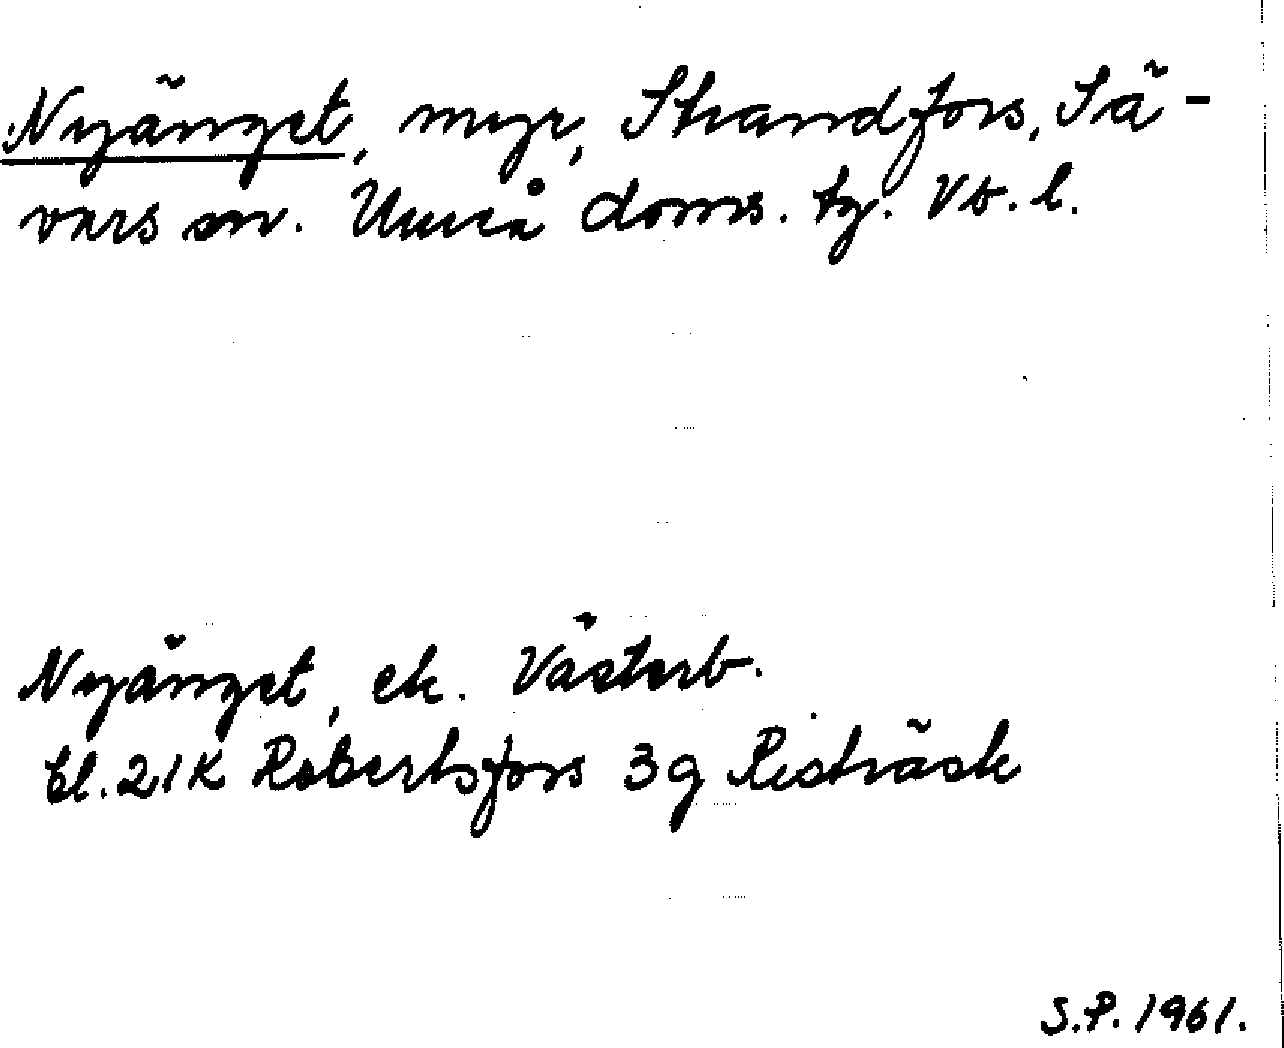 Nyänget, myr, Strandfors, Sä-
vars sn. Umeå doms. tg. Vb. l.
Nyänget, ek. Västerb.
bl. 21K Robertsfors 3g Risträsk
S.P. 1961.